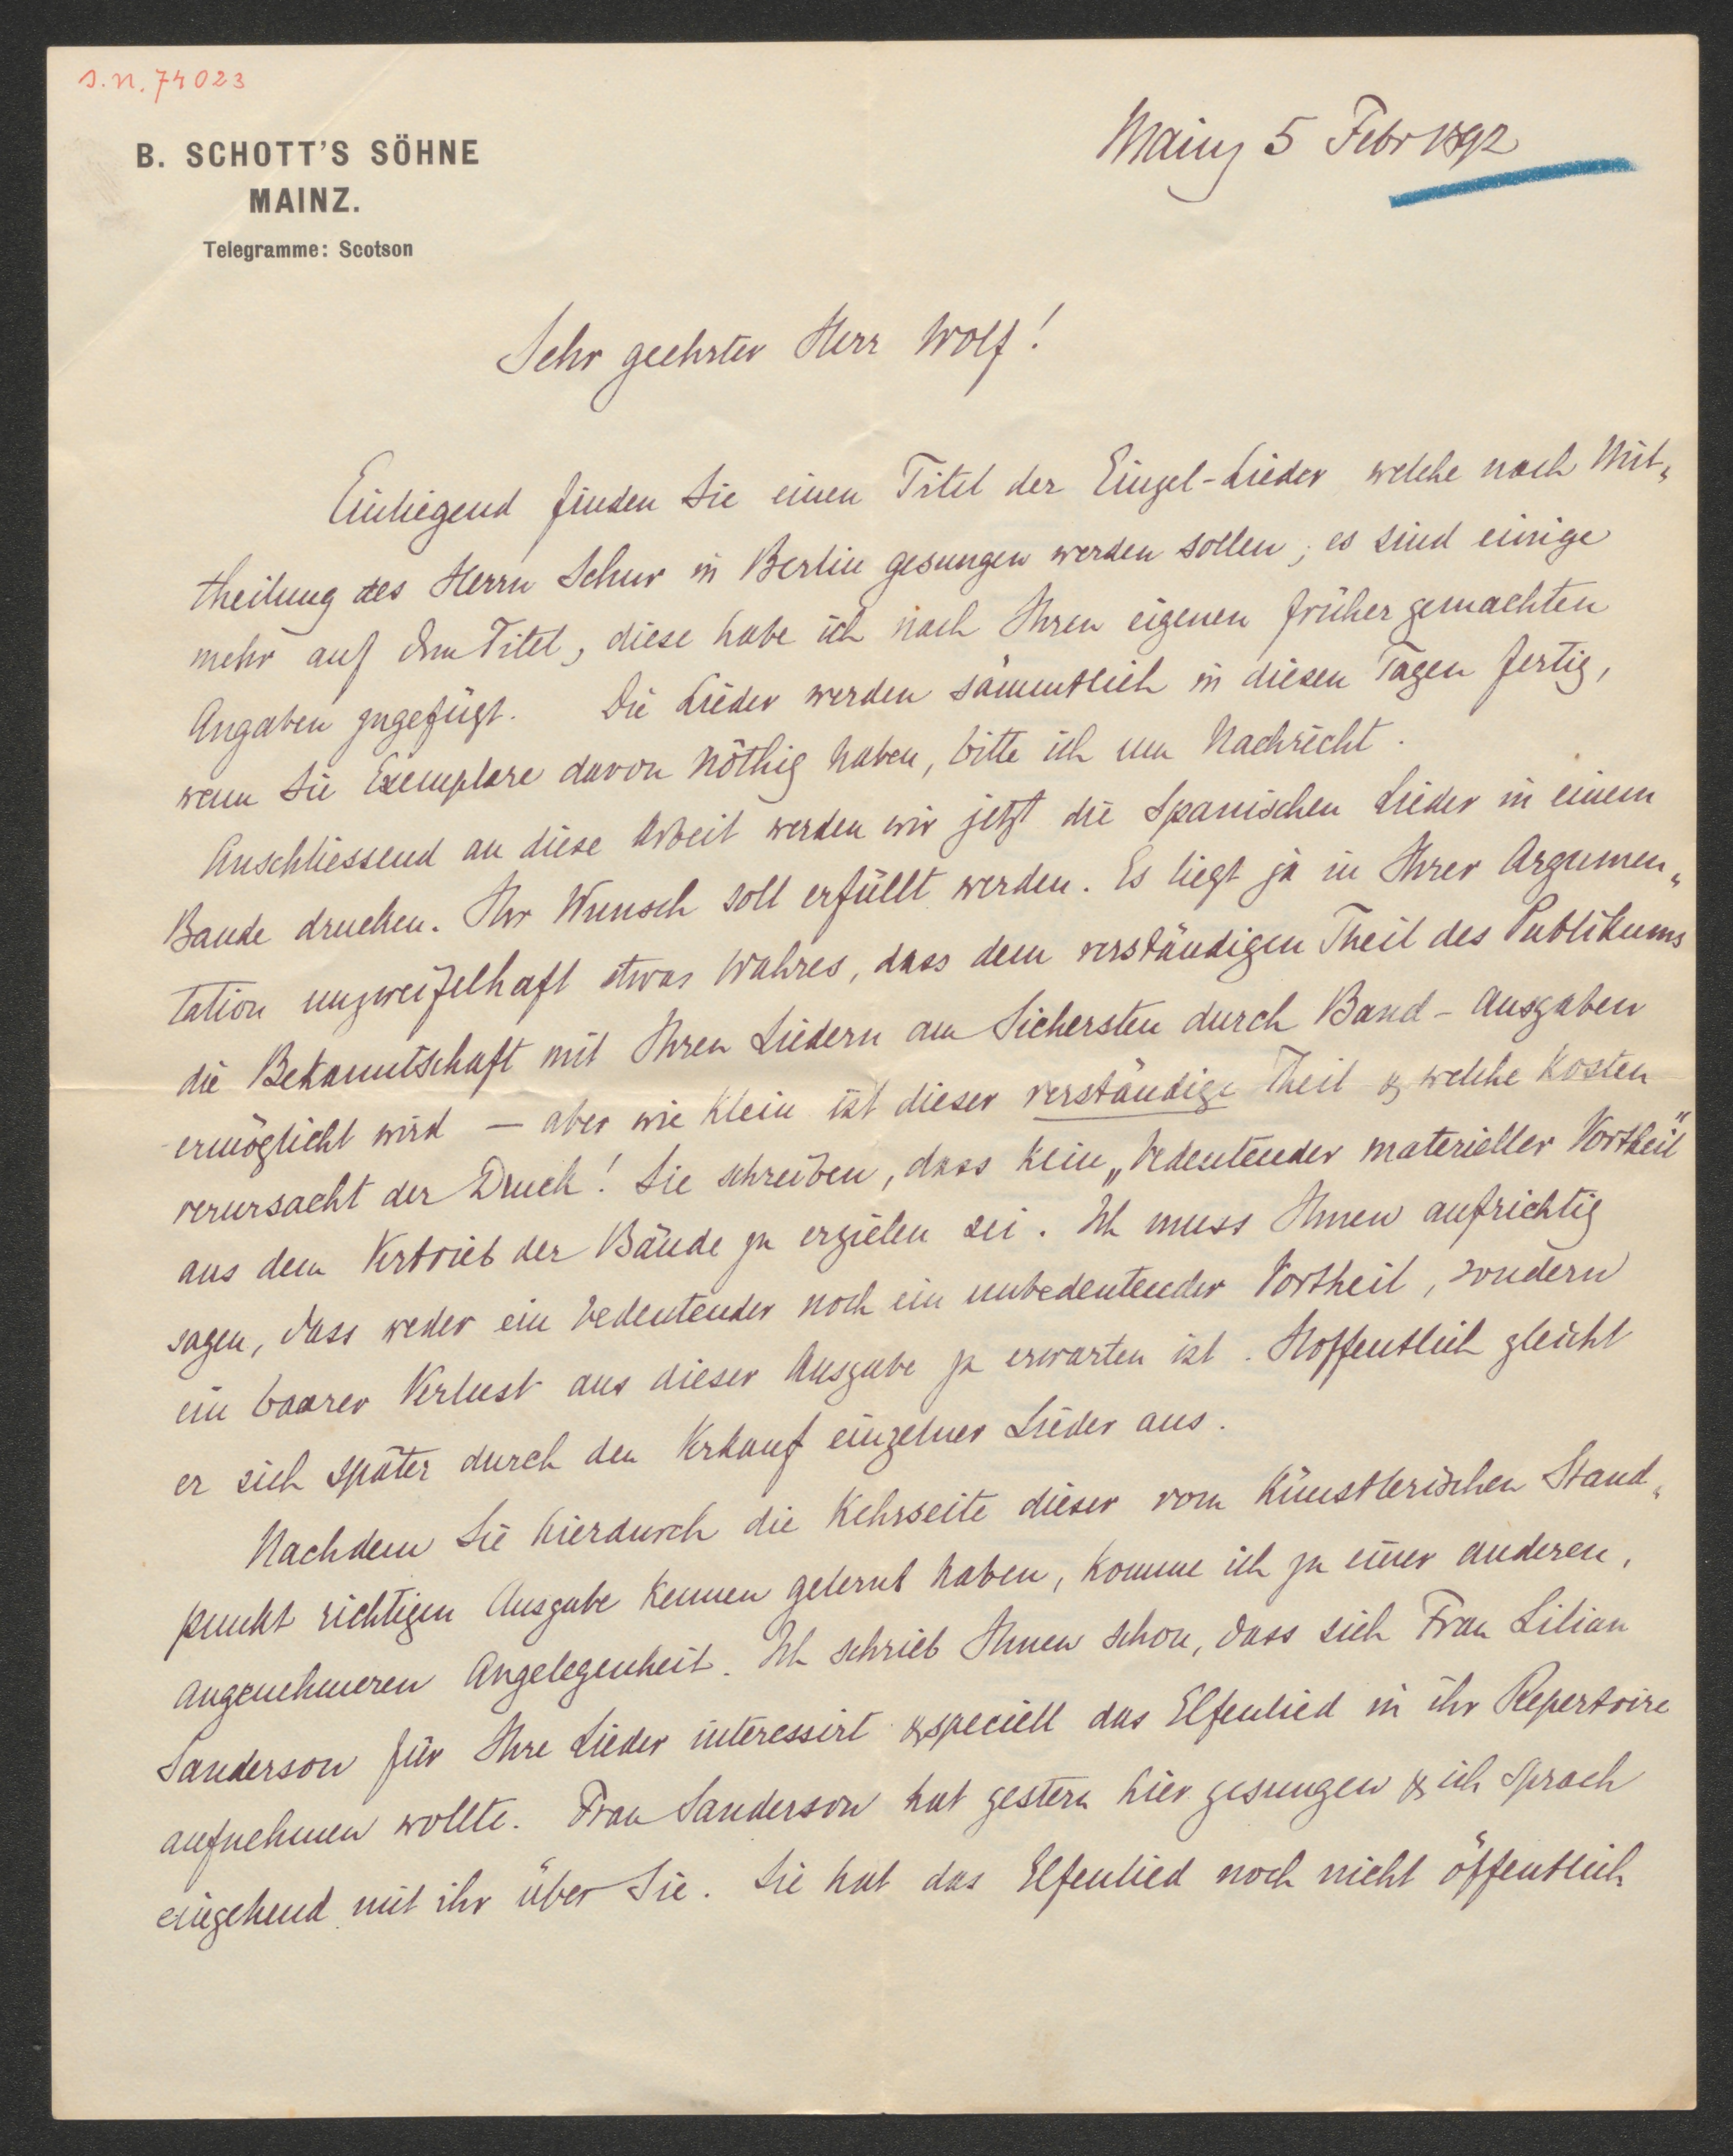 s.n. 74023
B. SCHOTT'S SÖHNE
MAINZ.
Telegramme: Scotson
Mainz 5 Febr 1892
Sehr geehrter Herr Wolf!
Einliegend finden Sie einen Titel der Einzel-Lieder welche nach Mit„
theilung des Herrn Schur in Berlin gesungen werden sollen; es sind einige
mehr auf dem Titel, diese habe ich nach Ihren eigenen früher gemachten
Angaben zugefügt. Die Lieder werden sämmtlich in diesen Tagen fertig,
wenn Sie Exemplare davon nöthig haben, bitte ich um Nachricht.
Anschliessend an diese Arbeit werden wir jetzt die Spanischen Lieder in einem
Bande drucken. Ihr Wunsch soll erfüllt werden. Es liegt ja in Ihrer Argumen„
tation unzweifelhaft etwas Wahres, dass dem verständigen Theil des Publikums
die Bekanntschaft mit Ihren Liedern am Sichersten durch Band-Ausgaben
ermöglicht wird — aber wie klein ist dieser verständige Theil & welche Kosten
verursacht der Druck! Sie schreiben, dass kein „bedeutender materieller Vortheil"
aus dem Vertrieb der Bände zu erzielen sei. Ich muss Ihnen aufrichtig
sagen, dass weder ein bedeutender noch ein unbedeutender Vortheil, sondern
ein baarer Verlust aus dieser Ausgabe zu erwarten ist. Hoffentlich gleicht
er sich später durch den Verkauf einzelner Lieder aus.
Nachdem Sie hierdurch die Kehrseite dieser vom künstlerischen Stand„
punkt richtigen Ausgabe kennen gelernt haben, komme ich zu einer anderen,
angenehmeren Angelegenheit. Ich schrieb Ihnen schon, dass sich Frau Lilian
Sanderson für Ihre Lieder interessirt & speciell das Elfenlied in ihr Repertoire
aufnehmen wollte. Frau Sanderson hat gestern hier gesungen & ich sprach
eingehend mit ihr über Sie. Sie hat das Elfenlied noch nicht öffentlich